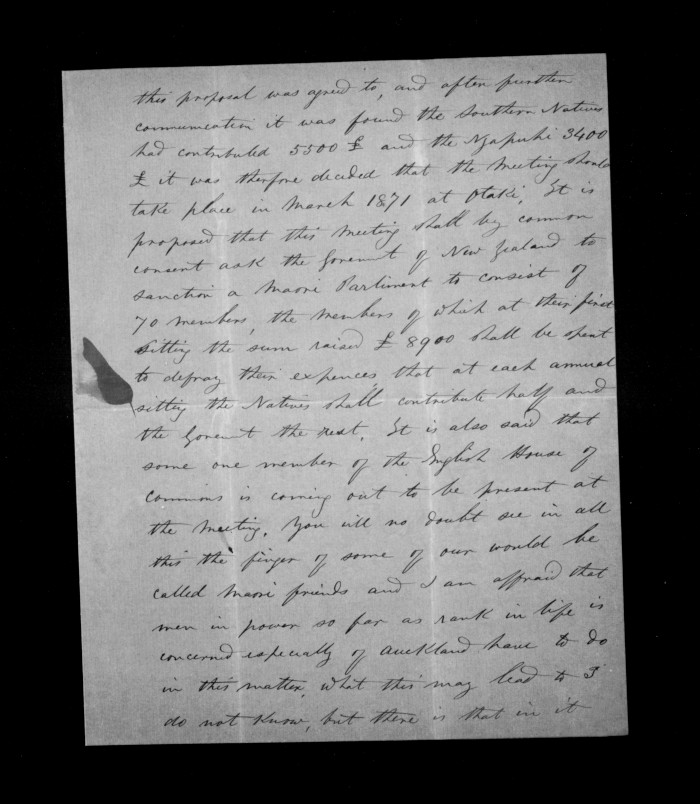 this proposal was agreed to, and after further
communication it was found the Southern Natives
had contributed 5500 £ and the Ngapuhi 3400
£ it was therfore decided that the Meeting should
take place in March 1871 at Otaki, It is
proposed that this Meeting shall by common
consent ask the Goverment of New Zealand to
sanction a Maori Parliment to consist of
70 members, the members of which at their first
sitting the sum raised £ 8900 shall be spent
to defray their expences that at each annual
sitting the Natives shall contribute half and
the Goverment the rest. It is also said that
some one member of the English House of
Commons is coming out to be present at
the Meeting. You will no doubt see in all
this the finger of some of our would be
called Maori friends and I am affraid that
men in power so far as rank in life is
concerned especially of Auckland have to do
in this matter, what this may lead to I
do not know, but there is that in it